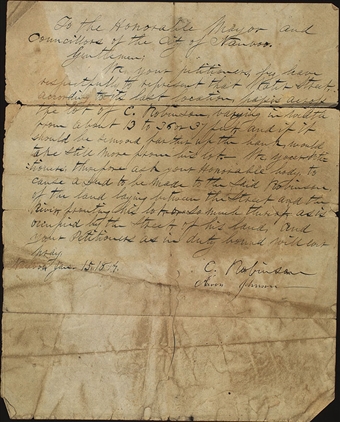 To the Honorable Mayor and
Councillors of the City of
Gentlemen,
We your petitioners, have
respectfully to represent that Water Street
according to the last location, passes across
the lot of C. Robinson varying in width
from about 13 to 36 or 37 feet and if it
should be removed farther up the bank would
take still more from his lot. We
therefore ask your Honorable body to
cause a deed to be made to the said Robinson
of the land laying between the Street and the
River fronting his lot or so much thereof as is
occupied by the Street of his land, and
your Petitioners as in duty bound will ever
pray
C. Robinson
Johnson